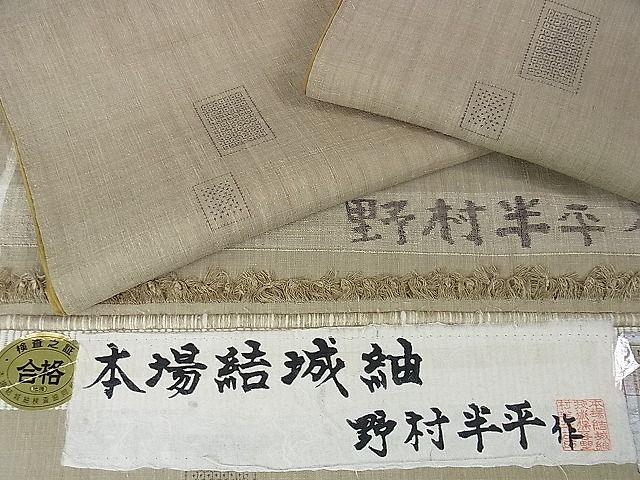 野村半平
検査之証
合格
本場結城紬
野村半平作